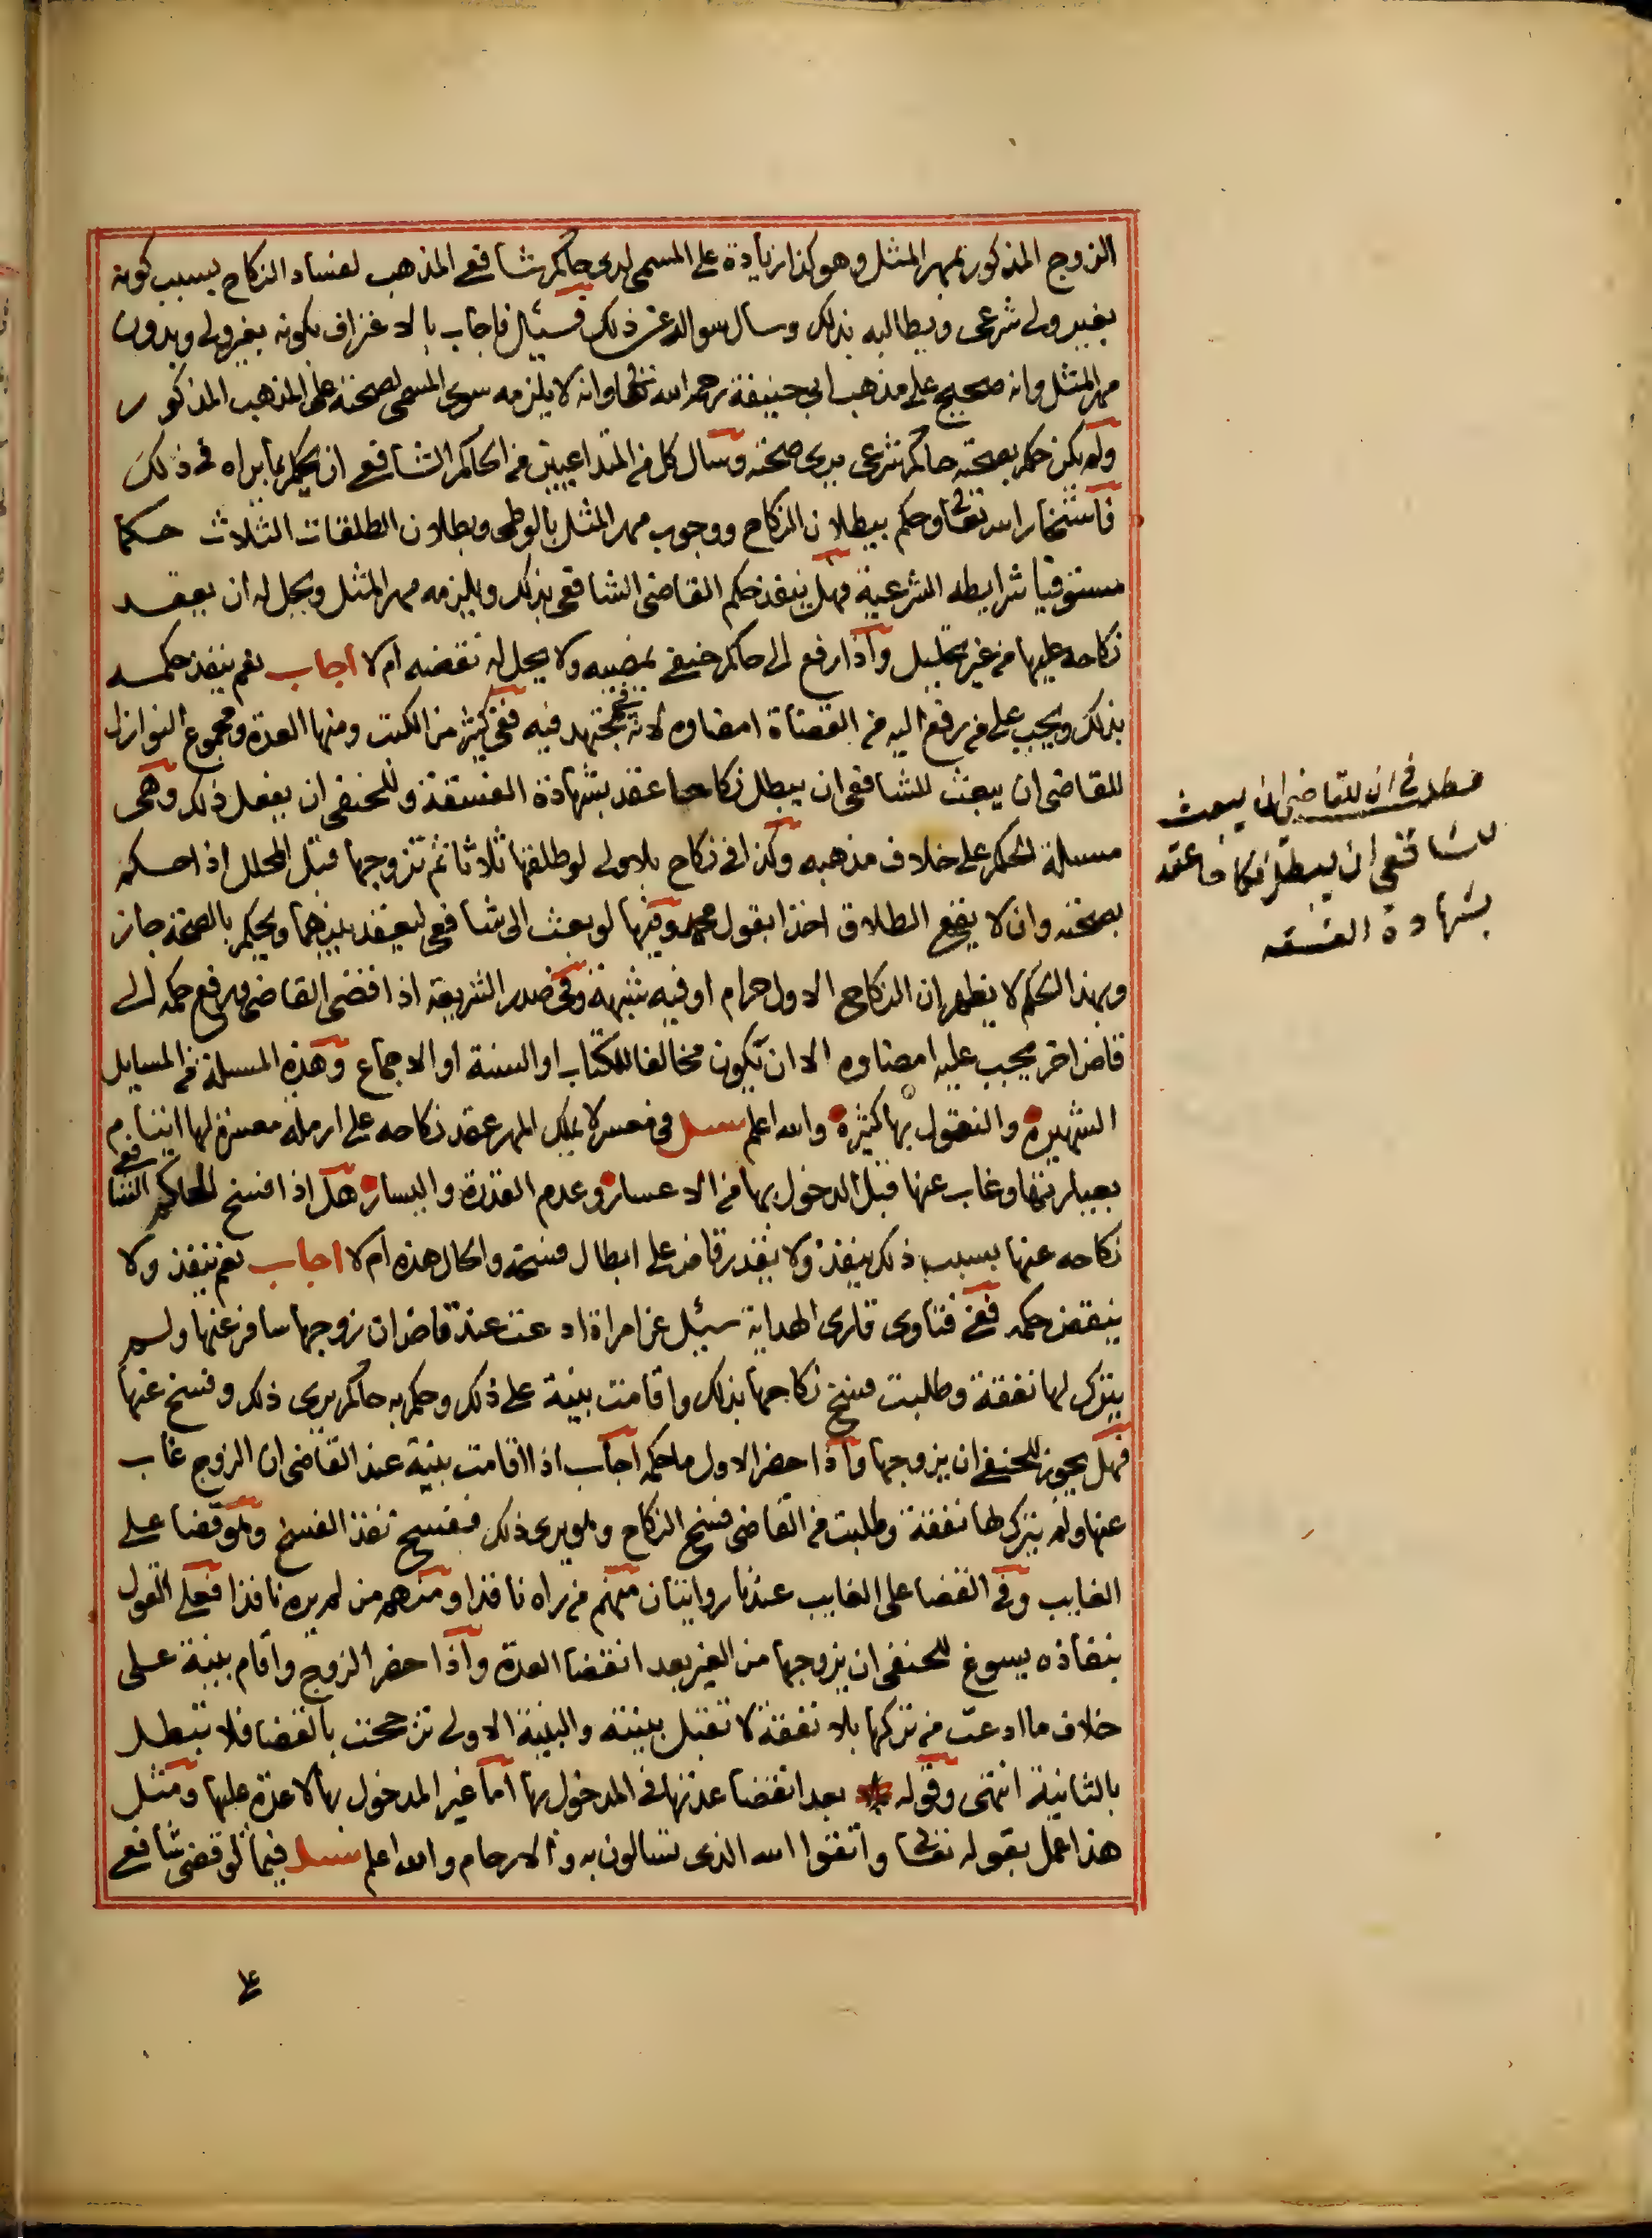 الزوج المذكور بمهر المثل وهو كذا زيادة على المسمى لدى حاكم شافعي المذهب لفساد النكاح بسبب كونه
بغير ولي شرعي ويطالبه بذلك وسال سواله عن ذلك فسئل فاجاب بالاعتراف بكونه بغير ولي وبدون
مهر المثل وانه صحيح على مذهب ابي حنيفة رحمه الله تعالى وانه لا يلزمه سوى المسمى لصحته على المذهب المذكور
ولم يكن حكم بصحته حاكم شرعي يرى صحته وسال كل من المتداعيين من الحاكم الشافعي ان يحكم بما يراه في ذلك
فاستخار الله تعالى وحكم ببطلان النكاح ووجوب مهر المثل بالوطي وبطلان الطلقات الثلاث حكما
مستوفيا شرايطه الشرعية فهل ينفذ حكم القاضي الشافعي بذلك ويلزمه مهر المثل ويحل له ان يعقد
نكاحه عليها من غير تحليل واذا رفع الى حاكم حنفي يمضيه ولا يحل له نقضه ام لا اجاب نعم ينفذ حكمه
بذلك ويجب على من رفع اليه من القضاة امضاوه لانه مجتهد فيه ففي كثير من الكتب ومنها العدة ومجموع النوازل
للقاضي ان يبعث للشافعي ان يبطل نكاحا عقد بشهادة الفسقة وللحنفي ان يفعل ذلك وهي
مسئلة الحكم على خلاف مذهبه وكذا في نكاح بلا ولي لو طلقها ثلاثا ثم تزوجها قبل المحلل اذا حكم
بصحته وان لا يقع الطلاق اخذا بقول محمد وفيها لو بعث الى شافعي ليعقد بينهما ويحكم بالصحة جاز
وبهذا الحكم لا يظهر ان النكاح الاول حرام او فيه شبهة وفي صدر الشريعة اذا قضى القاضي ورفع حكمه الى
قاض اخر يجب عليه امضاوه الا ان يكون مخالفا للكتاب او السنة او الاجماع وهذه المسئلة من المسايل
الشهيرة والنقول بها كثيرة والله اعلم سئل في معسر لا يملك المهر عقد نكاحه على ارملة معسرة لها ايتام
بعيلتها وغاب عنها قبل الدخول بها من الاعسار وعدم القدرة واليسار هل اذا فسخ الحاكم الشافعي
نكاحه عنها بسبب ذلك ينفذ ولا يقدر قاض على ابطال فسخه والحال هذه ام لا اجاب نعم ينفذ ولا
ينقض حكمه ففي فتاوى قارى الهداية سئل عن امراة ادعت عند قاض ان زوجها سافر عنها ولم
يترك لها نفقة وطلبت فسخ نكاحها بذلك واقامت بينة على ذلك وحكم به حاكم يرى ذلك وفسخ عنها
فهل يجوز للحنفي ان يزوجها واذا حضر الاول ما حكمه اجاب اذا اقامت بينة عند القاضي ان الزوج غاب
عنها ولم يترك لها نفقة وطلبت من القاضي فسخ النكاح وهو يرى ذلك ففسخ نفذ الفسخ وهو قضا على
الغايب وفي القضا على الغايب عندنا روايتان منهم من يراه نافذا ومنهم من لم يره نافذا فعلى القول
بنفاذه يسوغ للحنفي ان يزوجها من الغير بعد انقضا العدة واذا حضر الزوج واقام بينة على
خلاف ما ادعت من تركها بلا نفقة لا تقبل بينته والبينة الاولى ترجحت بالقضا فلا تبطل
بالثانية انتهى وقوله بعد انقضا عدتها في المدخول بها اما غير المدخول بها لا عدة عليها ومثل
هذا عمل بقوله تعالى واتقوا الله الذى تسالون به والارحام والله اعلم سئل فيما لو قضى شافعي
مطلب في ان للقاضي ان يبعث
للشافعي ان يبطل نكاحا عقد
بشهادة الفسقه
على